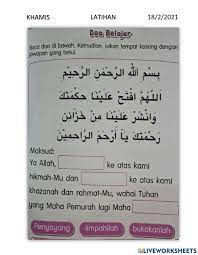 KHAMIS LATIHAN 18/2/2021
Doa Belajar
Baca doa di bawah. Kemudian, isikan tempat kosong dengan
jawapan yang betul.
بِسْمِ اللَّهِ الرَّحْمَنِ الرَّحِيْمِ
اَللّٰهُمَّ افْتَحْ عَلَيْنَا حِكْمَتَكَ
وَانْشُرْ عَلَيْنَا مِنْ خَزَائِنِ
رَحْمَتِكَ يَا أَرْحَمَ الرَّاحِمِيْنَ
Maksud:
Ya Allah, ke atas kami
hikmah-Mu dan ke atas kami
khazanah dan rahmat-Mu, wahai Tuhan
yang Maha Pemurah lagi Maha
Penyayang limpahilah bukakanlah
LIVEWORKSHEETS